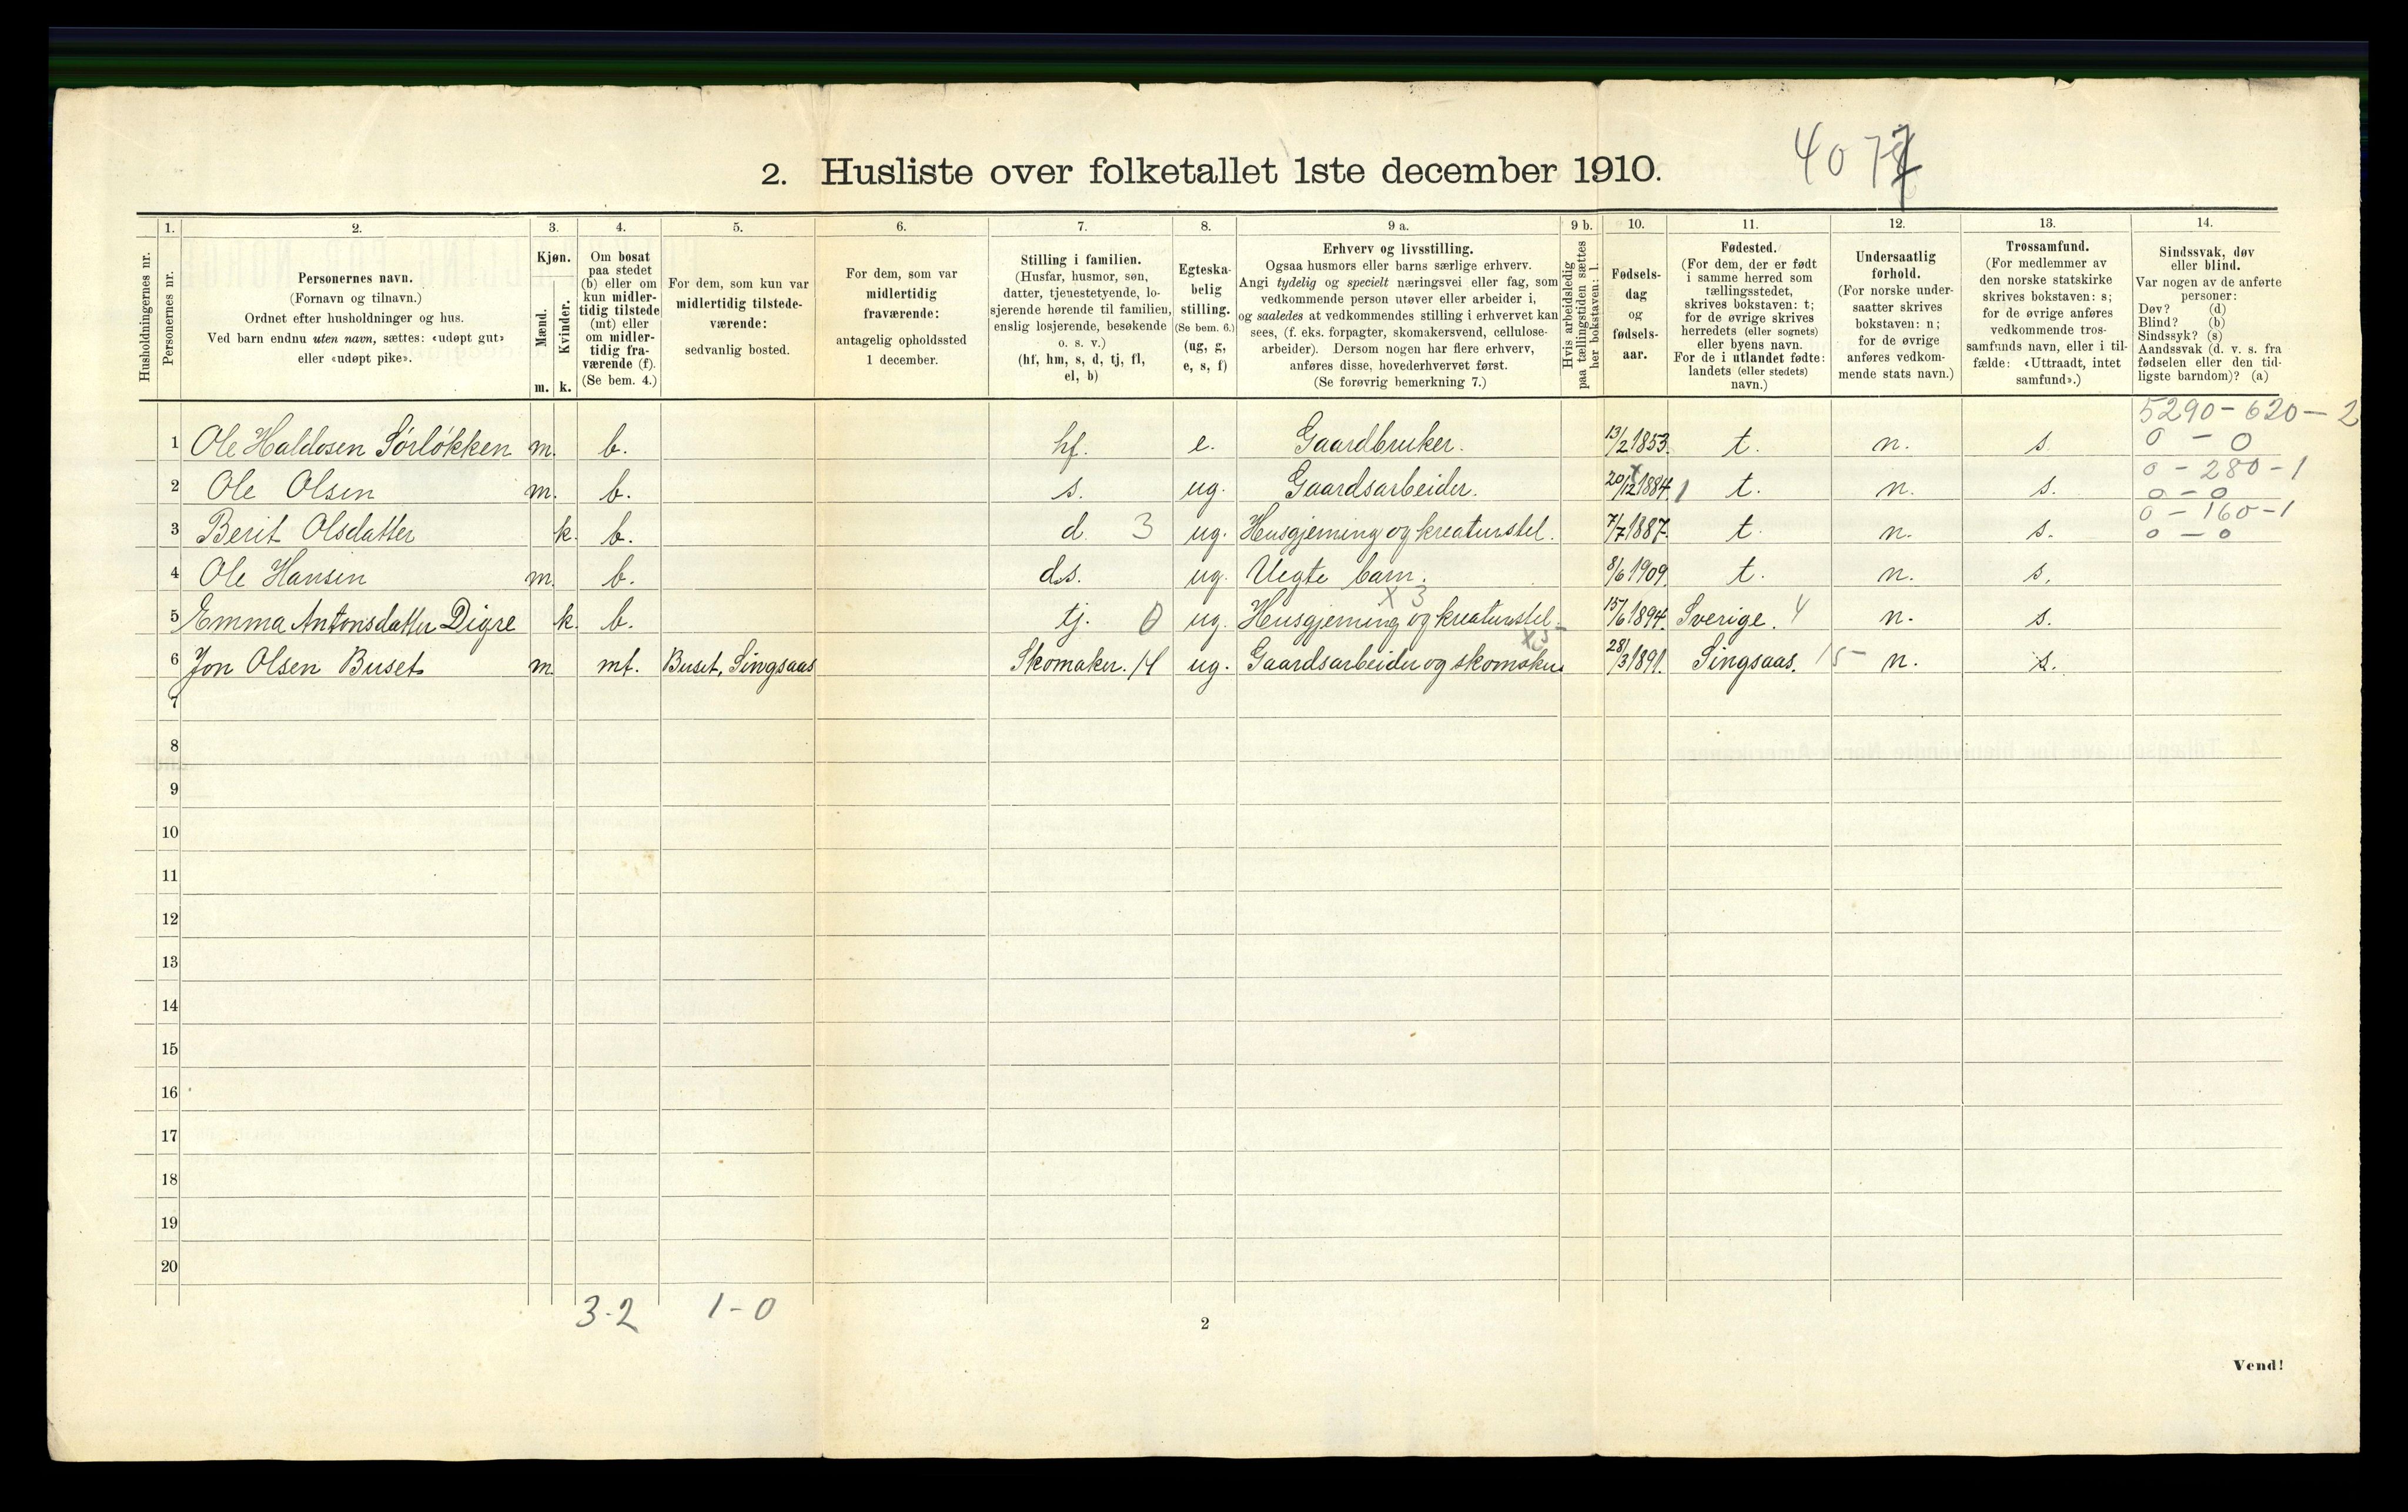 2. Husliste over folketallet 1ste december 1910.
Husholdningernes nr.
1.
Personernes nr.
2.
Personernes navn.
(Fornavn og tilnavn.)
Ordnet efter husholdninger og hus.
Ved barn endnu uten navn, sættes: «udøpt gut»
eller «udøpt pike».
3.
Kjøn.
Mænd.
Kvinder.
m. k.
4.
Om bosat
paa stedet
(b) eller om
kun midler-
tidig tilstede
(mt) eller
om midler-
tidig fra-
værende (f).
(Se bem. 4.)
5.
For dem, som kun var
midlertidig tilstede-
værende:
sedvanlig bosted.
6.
For dem, som var
midlertidig
fraværende:
antagelig opholdssted
1 december.
7.
Stilling i familien.
(Husfar, husmor, søn,
datter, tjenestetyende, lo-
sjerende hørende til familien,
enslig losjerende, besøkende
o. s. v.)
(hf, hm, s, d, tj, fl,
el, b)
8.
Egteska-
belig
stilling.
(Se bem. 6.)
(ug, g,
e, s, f)
9 a.
Erhverv og livsstilling.
Ogsaa husmors eller barns særlige erhverv.
Angi tydelig og specielt næringsvei eller fag, som
vedkommende person utøver eller arbeider i,
og saaledes at vedkommendes stilling i erhvervet kan
sees, (f. eks. forpagter, skomakersvend, cellulose-
arbeider). Dersom nogen har flere erhverv,
anføres disse, hovederhvervet først.
(Se forøvrig bemerkning 7.)
9 b.
Hvis arbeidsledig
paa tællingstiden sættes
her bokstaven: l.
10.
Fødsels-
dag
og
fødsels-
aar.
11.
Fødested.
(For dem, der er født
i samme herred som
tællingsstedet,
skrives bokstaven: t;
for de øvrige skrives
herredets (eller sognets)
eller byens navn.
For de i utlandet fødte:
landets (eller stedets)
navn.)
12.
Undersaatlig
forhold.
(For norske under-
saatter skrives
bokstaven: n;
for de øvrige
anføres vedkom-
mende stats navn.)
13.
Trossamfund.
(For medlemmer av
den norske statskirke
skrives bokstaven: s;
for de øvrige anføres
vedkommende tros-
samfunds navn, eller i til-
fælde: «Uttraadt, intet
samfund».)
14.
Sindssvak, døv
eller blind.
Var nogen av de anførte
personer:
Døv? (d)
Blind? (b)
Sindssyk? (s)
Aandssvak (d. v. s. fra
fødselen eller den tid-
ligste barndom)? (a)
5290 - 620 - 2
1 Ole Haldosen Sørløkken m. b. hf. e. Gaardbruker. 13/2 1853. t. n. s. 0 - 0
0 - 280 - 1
2 Ole Olsen m. b. s. ug. Gaardsarbeider. 20/12 1884. 1 t. n. s. 0 - 0
0 - 160 - 1
3 Berit Olsdatter k. b. d. 3 ug. Husgjerning og kreaturstel. 7/7 1887. t. n. s. 0 - 0
4 Ole Hansen m. b. d.s. ug. Uegte barn. 8/6 1909. t. n. s.
x 3
5 Emma Antonsdatter Digre k. b. tj. 0 ug. Husgjerning og kreaturstel. 15/6 1894. Sverige. 4 n. s.
6 Jon Olsen Buset m. mt. Buset, Singsaas Skomaker. 14 ug. Gaardsarbeider og skomaker 28/3 1891. Singsaas. 15 - n. s.
7
8
9
10
11
12
13
14
15
16
17
18
19
20
3-2 1-0
2
Vend!